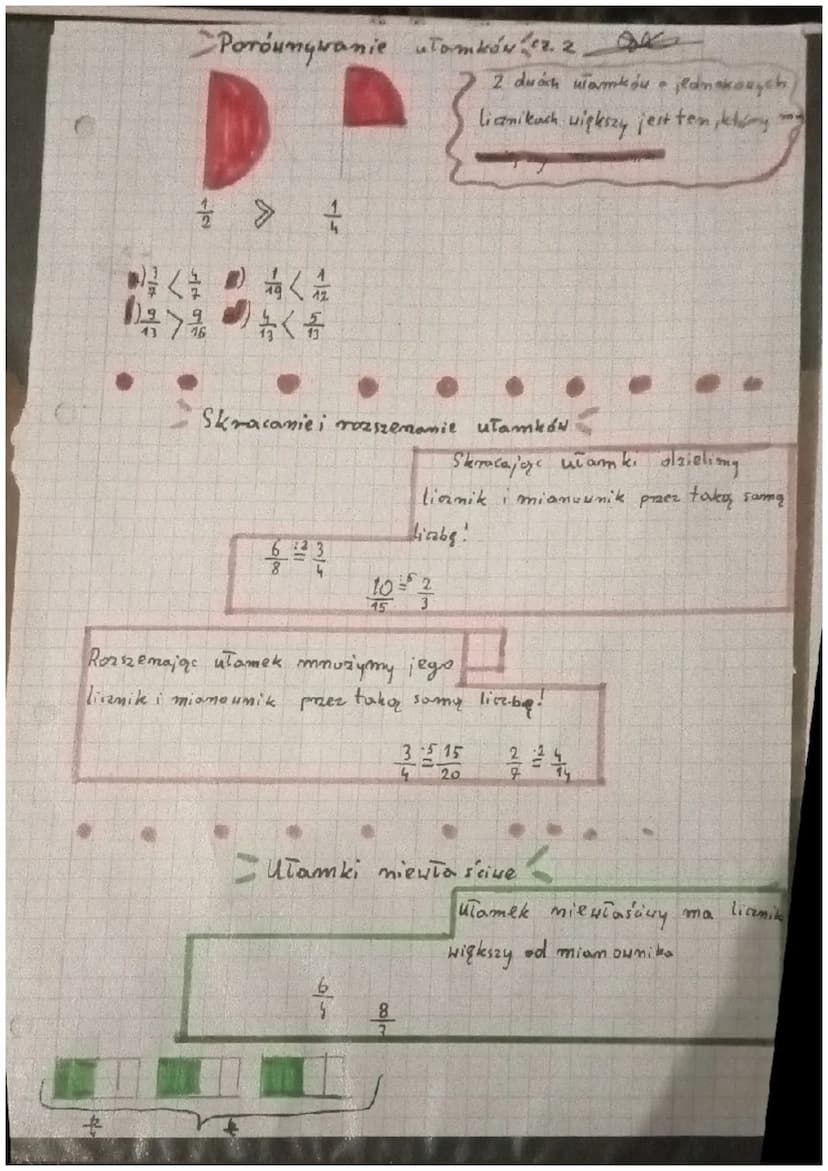 Porównywanie ułamków cz. 2
Z dwóch ułamków o jednakowych
licznikach większy jest ten, który ma
1/2 > 1/4
3/7 < 4/7 1/19 < 1/12
9/13 > 9/16 4/13 < 5/13
Skracanie i rozszeranie ułamków
Skracając ułamki dzielimy
licznik i mianownik przez taką samą
liczbę!
6/8 :2= 3/4
10/15 :5= 2/3
Rozszerzając ułamek mnożymy jego
licznik i mianownik przez taką samą liczbę!
3/4 ·5= 15/20 2/7 ·2= 4/14
Ułamki niewłaściwe
Ułamek niewłaściwy ma licznik
większy od mianownika
6/4
8/3